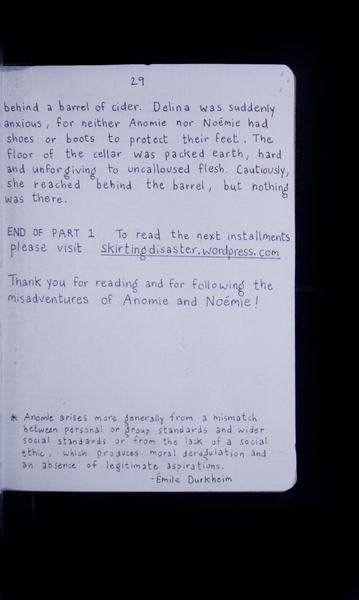 29
behind a barrel of cider. Delina was suddenly
anxious, for neither Anomie nor Noémie had
shoes or boots to protect their feet. The
floor of the cellar was packed earth, hard
and unforgiving to uncalloused flesh. Cautiously,
she reached behind the barrel, but nothing
was there.
END OF PART 1 To read the next installments
please visit skirtingdisaster.wordpress.com
Thank you for reading and for following the
misadventures of Anomie and Noémie!
* Anomie arises more generally from a mismatch
between personal or group standards and wider
social standards or from the lack of a social
ethic, which produces moral deregulation and
an absence of legitimate aspirations.
-Émile Durkheim